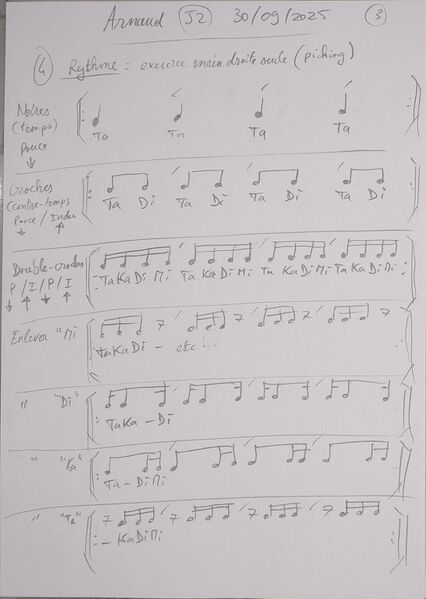 Arnaud J2 30/09/2025 3
4 Rythme : exercice main droite seule (picking)
Noires
(temps)
Pouce
↓
Ta Ta Ta Ta
Croches
(contre-temps
Pouce / Index
↓ ↑
Ta Di Ta Di Ta Di Ta Di
Double-croches
P / I / P / I
↓ ↑ ↓ ↑
TaKaDiMi Ta KaDiMi Ta KaDiMi Ta KaDiMi
Enlever "Mi
TaKaDi - etc...
" "Di"
TaKa - Di
" "Ka"
Ta - DiMi
" "Ta"
- KaDiMi